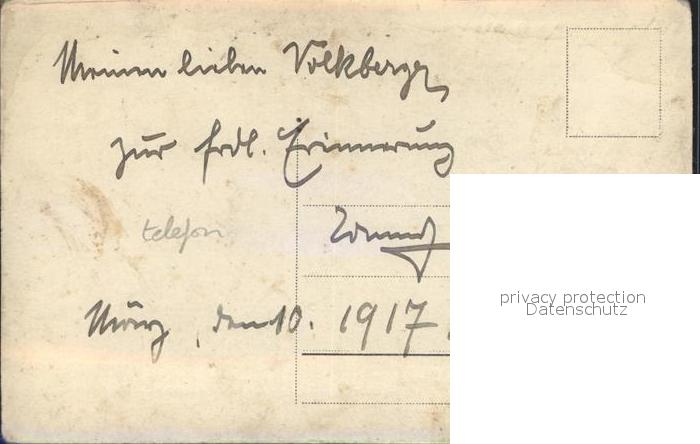 Meinem lieben Volkberger
zur frdl. Erinnerung
telefon
März, den 10. 1917.
privacy protection
Datenschutz